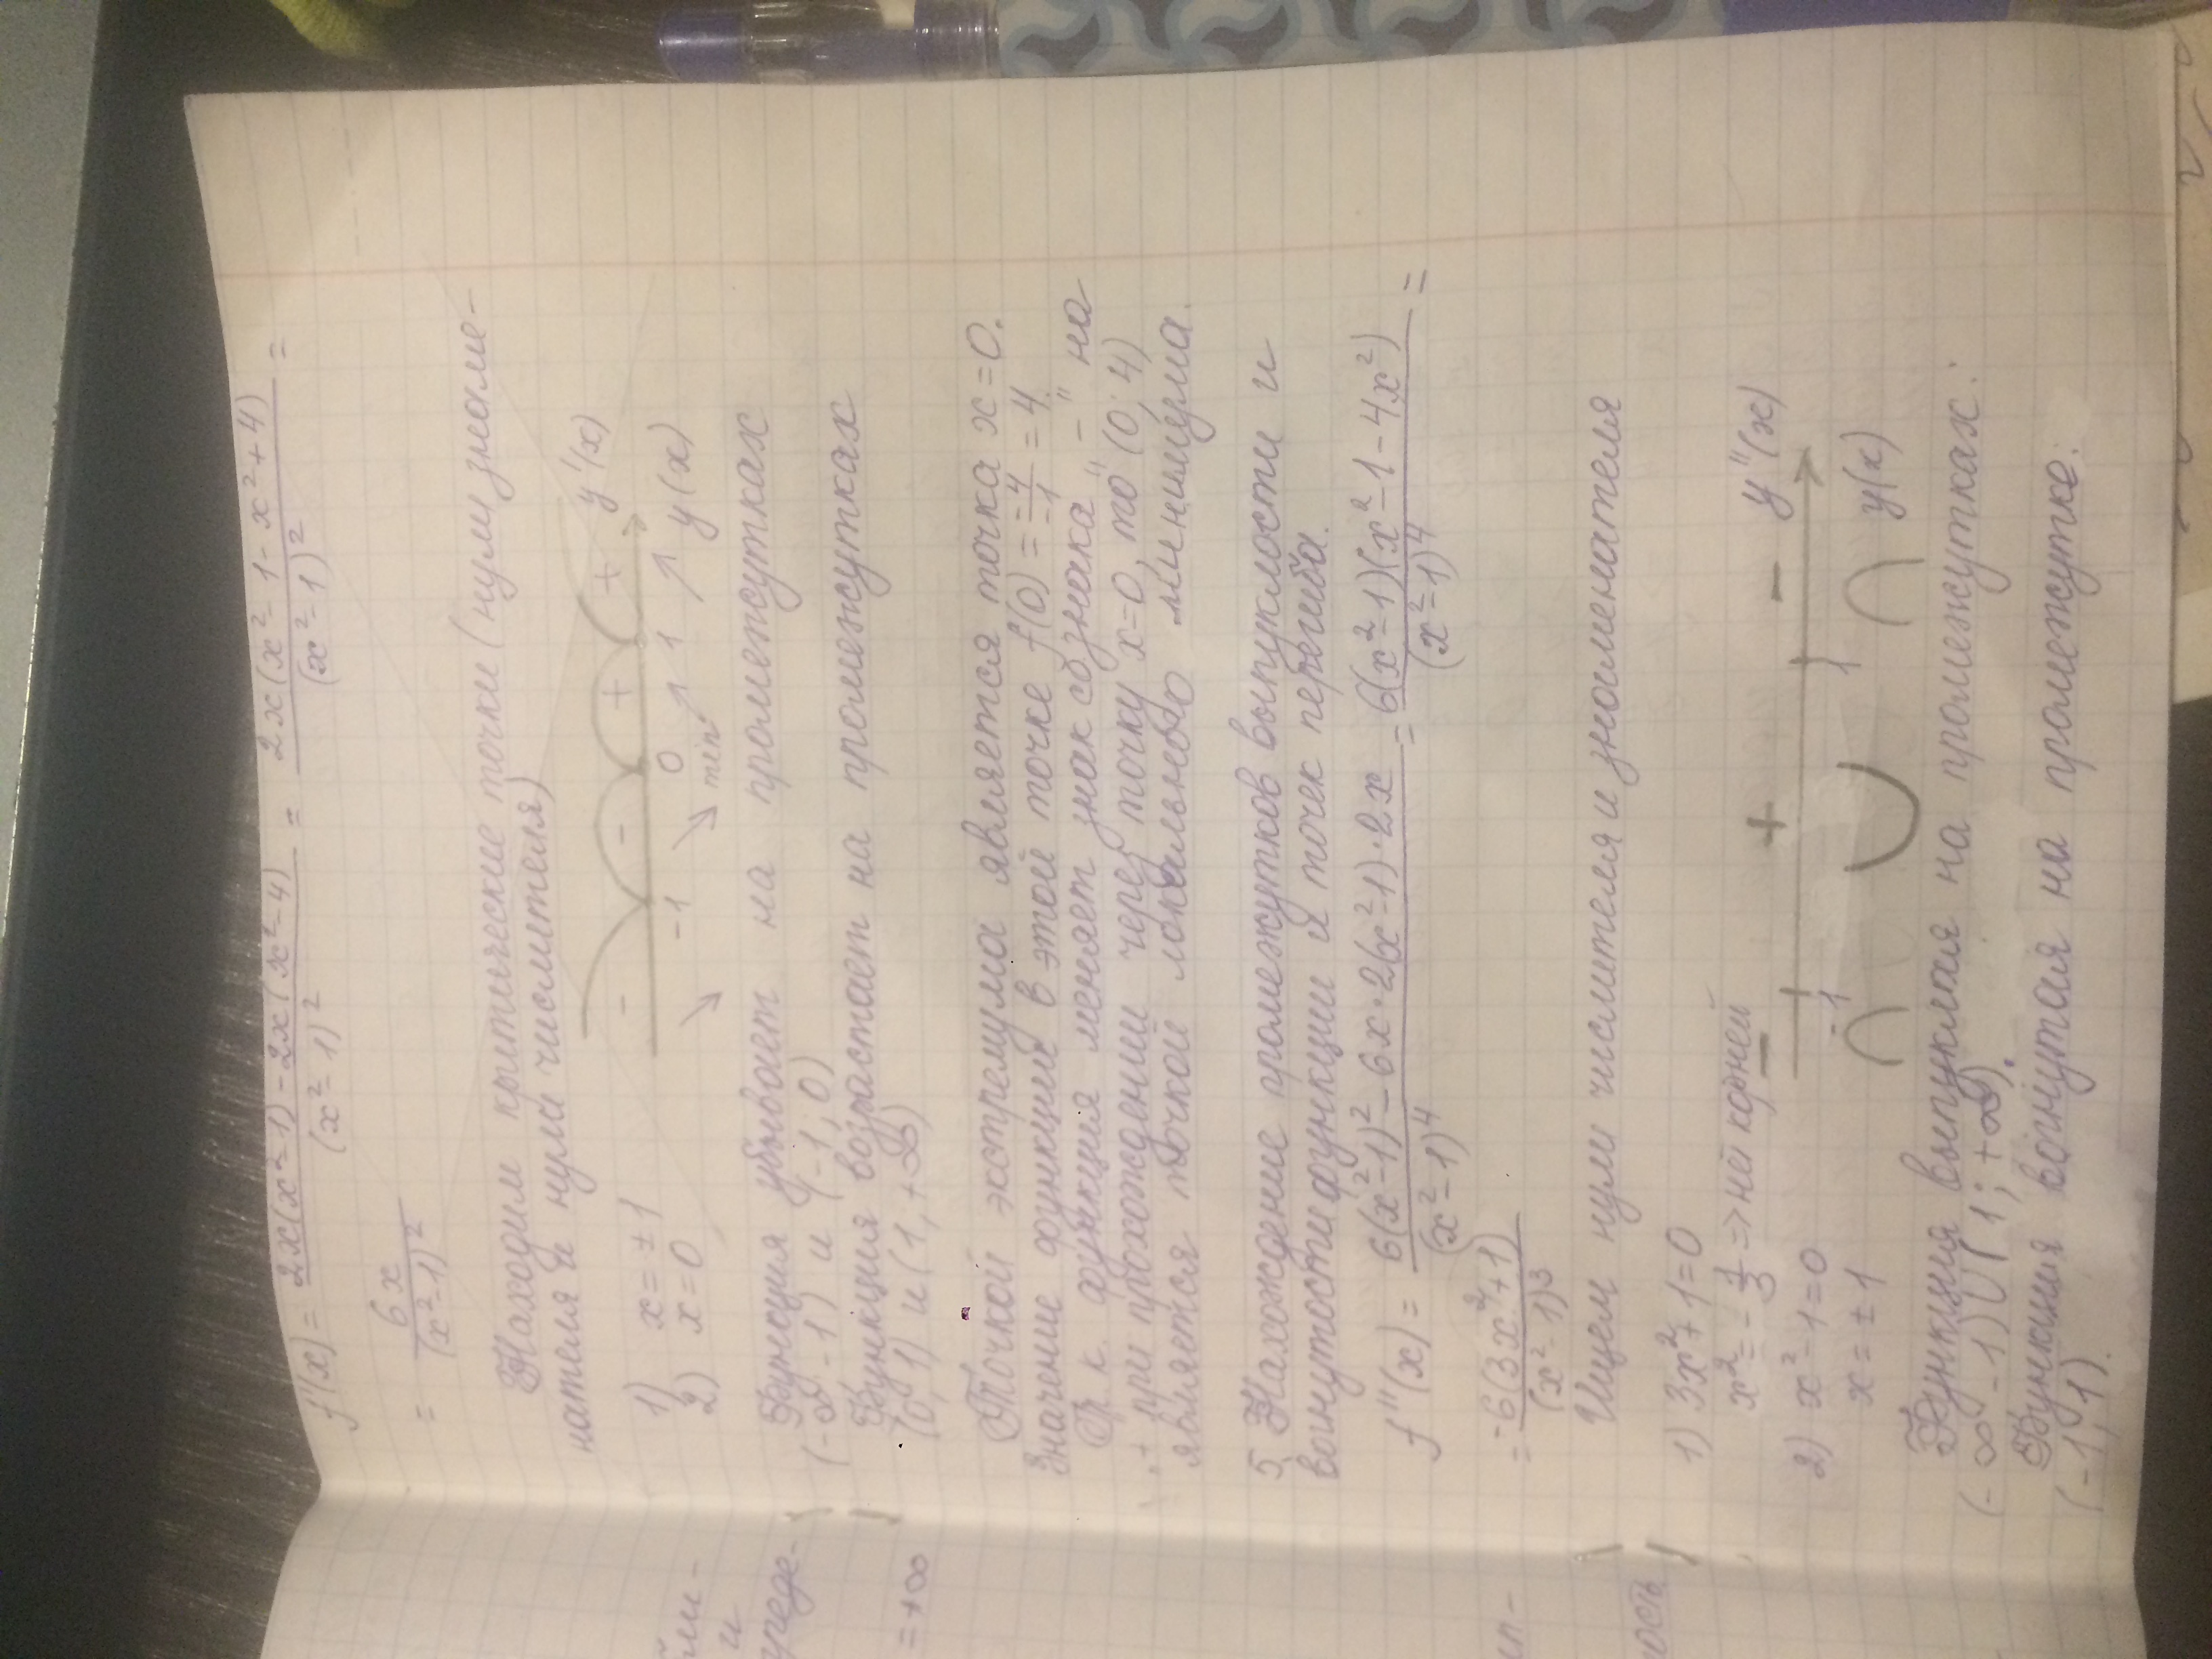 f'(x) = 2x(x²-1)-2x(x²-4) / (x²-1)² = 2x(x²-1-x²+4) / (x²-1)² =
= 6x / (x²-1)²
Находим критические точки (нули знаме-
нателя и нули числителя)
1) x = ±1
2) x = 0
- - + + y'(x)
-1 0 1 y(x)
min
Функция убывает на промежутках
(-∞,-1) и (-1,0)
Функция возрастает на промежутках
(0,1) и (1,+∞)
Точкой экстремума является точка x=0.
Значение функции в этой точке f(0) = -4/-1 = 4.
Т.к. функция меняет знак со знака "-" на
"+" при прохождении через точку x=0, то (0;4)
является точкой локального минимума.
5. Нахождение промежутков выпуклости и
вогнутости функции и точек перегиба.
f''(x) = 6(x²-1)²-6x·2(x²-1)·2x / (x²-1)⁴ = 6(x²-1)(x²-1-4x²) / (x²-1)⁴ =
= -6(3x²+1) / (x²-1)³
Ищем нули числителя и знаменателя
1) 3x²+1=0
x² = -1/3 => нет корней
2) x²-1=0
x = ±1
- + - y''(x)
-1 1 y(x)
Функция выпуклая на промежутках:
(-∞,-1)∪(1;+∞).
Функция вогнутая на промежутке:
(-1,1).
и
= +∞
ность